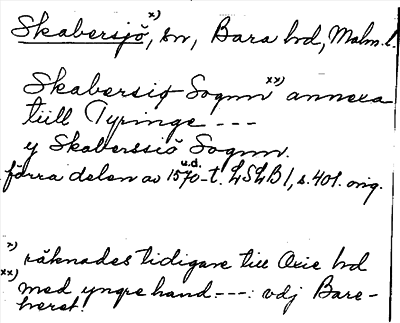 Skabersjö, x) sn, Bara hd, Malm. l.
Skabersiø Sognn xx) annexa
tiill Tyringe ---
y Skaberssiö Sognn.
förra delen av 1570-t. u.d. LSLB 1, s. 401. orig.
x) räknades tidigare till Oxie hd
xx) med yngre hand ---: vdj Bare-
heret!